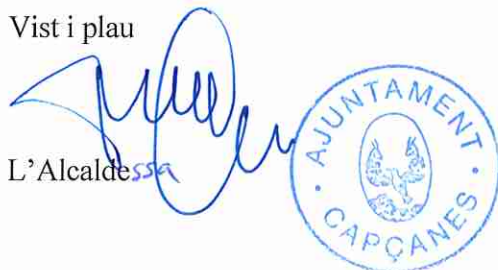 Vist i plau
L'Alcaldessa
AJUNTAMENT
CAPÇANES